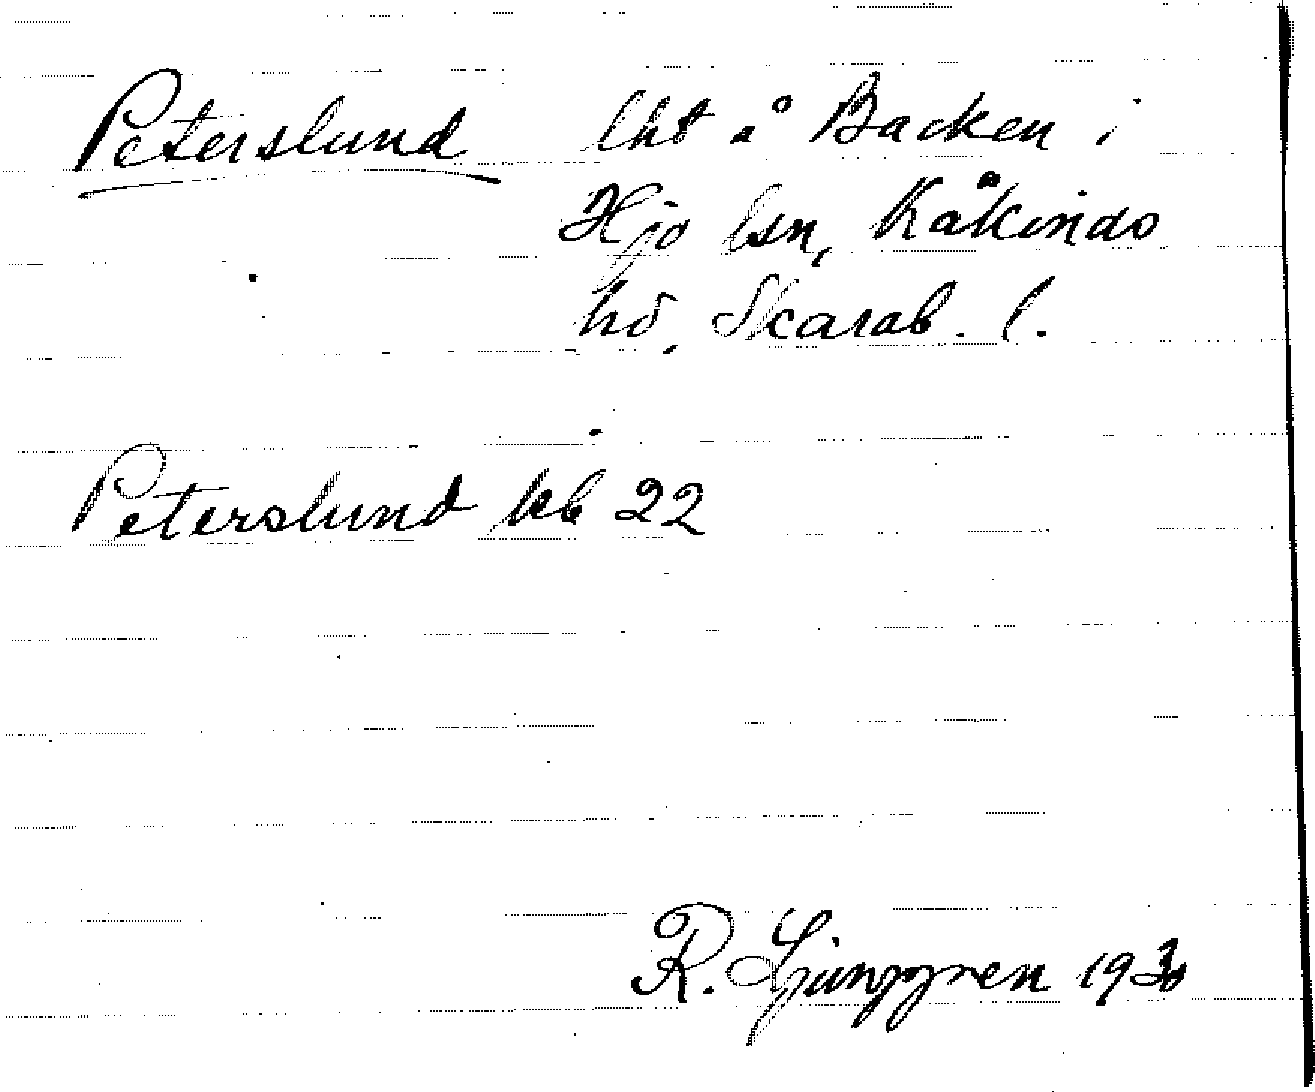 Peterslund lht å Backen i
Hjo lsn, Kåkinds
hd, Skarab. l.
Peterslund kb 22
R. Ljunggren 1930